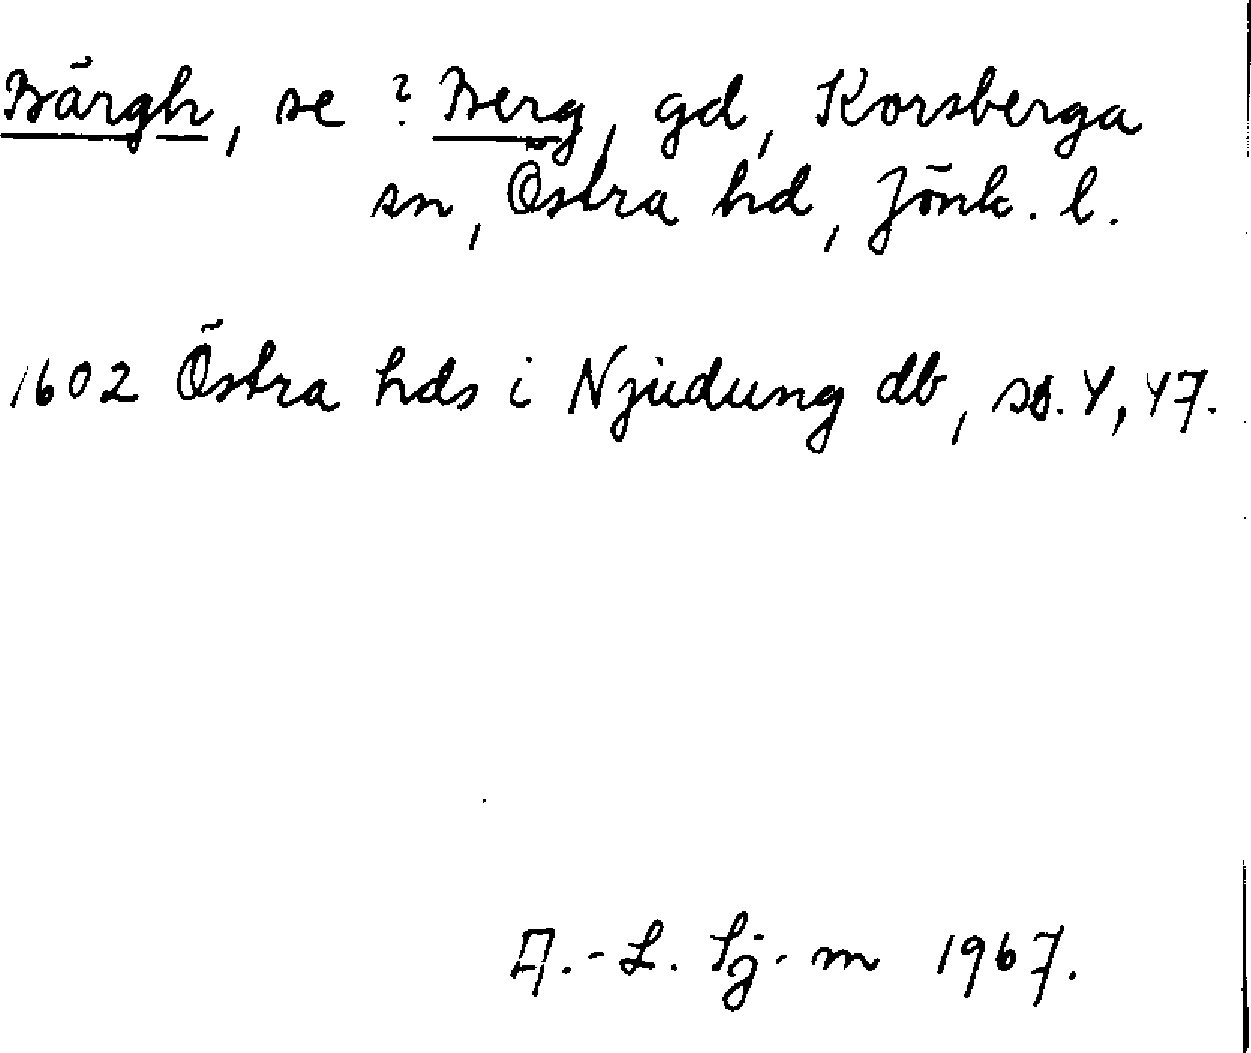 Bärgh, se ? Berg, gd, Korsberga
sn, Östra hd, Jönk. l.
1602 Östra hds i Njudung db, ss. 4, 47.
A.-L. Sj-m 1967.